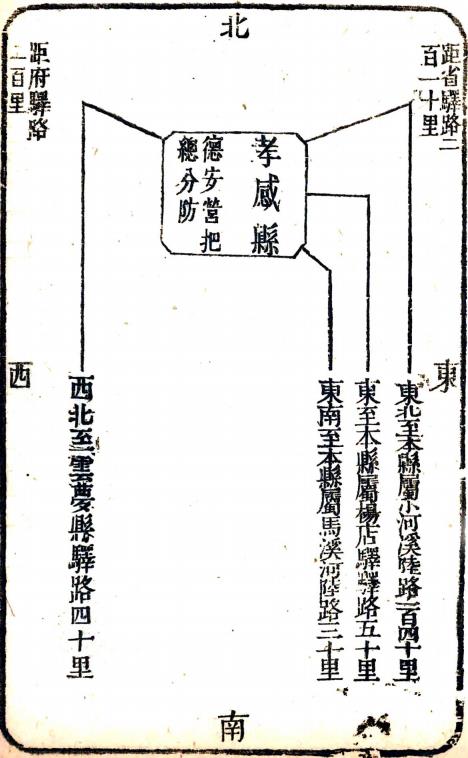 北
距省驛路二
百一十里
距府驛路
一百里
孝感縣
德安營把
總分防
東
西
東北至本縣屬小河溪陸路一百四十里
東至本縣屬楊店驛驛路五十里
東南至本縣屬馬溪河陸路三十里
西北至雲夢縣驛路四十里
南